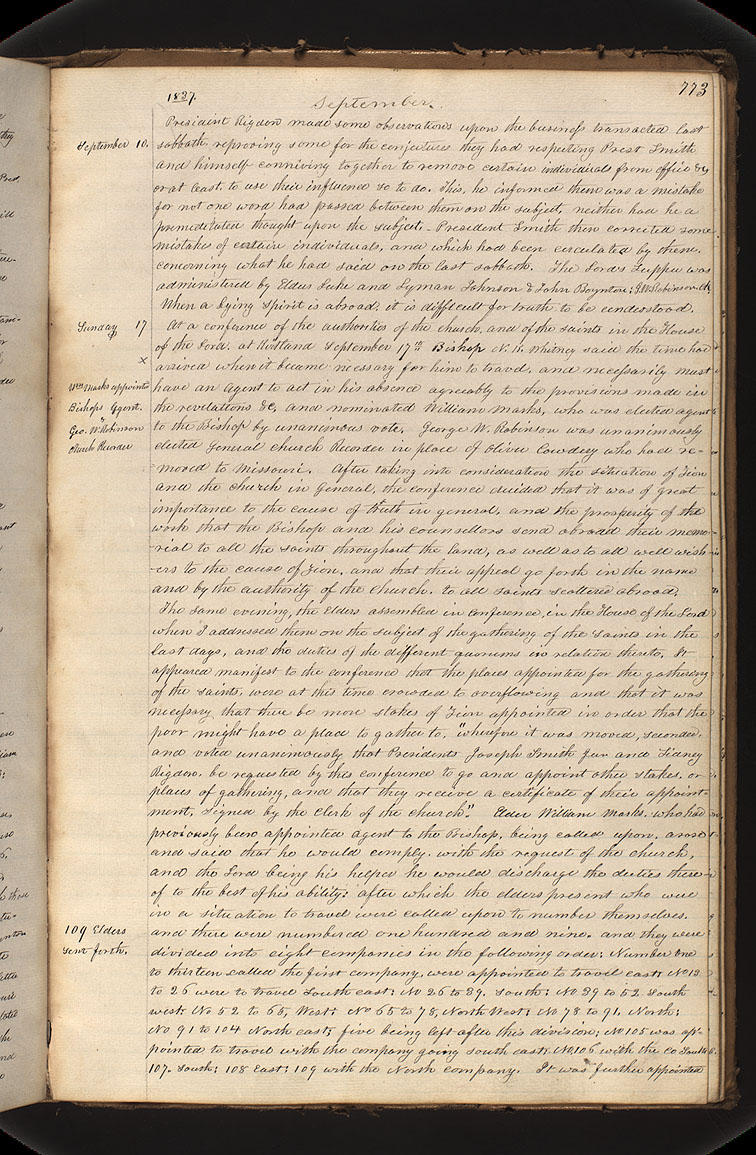 1837.
September.
773
President Rigdon made some observations upon the business transacted last
September 10.
sabbath, reproving some for the conjectures they had respecting Prest Smith
and himself conniving together to remove certain individuals from office &c
or at least, to use their influence so to do. This, he informed them was a mistake
for not one word had passed between them on the subject, neither had he a
premeditated thought upon the subject,— President Smith then corrected some
mistakes of certain individuals, and which had been circulated by them.
concerning what he had said on the last sabbath. The Lord's Supper was
administered by Elders Luke and Lyman Johnson & John Boynton; G.W. Robinson, clk
When a lying spirit is abroad, it is difficult for truth to be understood.
Sunday 17
At a conference of the authorities of the church, and of the saints in the House
of the Lord, at Kirtland September 17th Bishop N. K. Whitney said the time had
x
arrived when it became necessary for him to travel, and necessarily must
Wm Marks appointed
have an agent to act in his absence agreeably to the provisions made in
Bishops Agent.
the revelations &c, and nominated William Marks, who was elected agent
Geo. W. Robinson
to the Bishop by unanimous vote. George W. Robinson was unanimously
Church Recorder
elected general church Recorder in place of Oliver Cowdery who had re-
moved to Missouri. After taking into consideration the situation of Zion
and the church in general, the conference decided that it was of great
importance to the cause of truth in general, and the prosperity of the
work that the Bishop and his counsellors send abroad their memo-
rial to all the saints throughout the land, as well as to all well wish
-ers to the cause of Zion, and that their appeal go forth in the name
and by the authority of the church, to all saints scattered abroad.
The same evening, the Elders assembled in Conference, in the House of the Lord
when I addressed them on the subject of the gathering of the saints in the
last days, and the duties of the different quorums in relation thereto. It
appeared manifest to the conference that the places appointed for the gathering
of the saints, were at this time crowded to overflowing and that it was
necessary that there be more stakes of Zion appointed in order that the
poor might have a place to gather to, "wherefore it was moved, seconded
and voted unanimously that Presidents Joseph Smith Jun and Sidney
Rigdon, be requested by this conference to go and appoint other stakes, or
places of gathering, and that they receive a certificate of their appoint-
ment, signed by the clerk of the church." Elder William Marks, who had
previously been appointed agent to the Bishop, being called upon, arose
and said that he would comply with the request of the church,
and the Lord being his helper he would discharge the duties there
of to the best of his ability: after which the elders present who were
in a situation to travel were called upon to number themselves.
109 Elders
and there were numbered one hundred and nine. and they were
sent forth.
divided into eight companies in the following order; Number One
to thirteen called the first company, were appointed to travel east; No 13
to 26 were to travel South east; No 26 to 39. South; No 39 to 52 South
west; No 52 to 65, West; No 65 to 78, North West; No 78 to 91, North;
No 91 to 104 North east; five being left after this division; No 105 was ap-
pointed to travel with the company going south east; No 106 with the co South
107. South; 108 East; 109 with the North company. It was further appointed